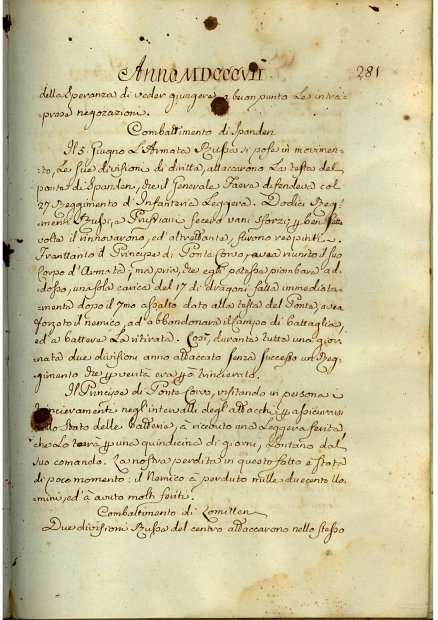 Anno MDCCCVII 281
della speranza di veder giungere a buon punto Le intra=
prese negoziazioni.
Combattimento di Spanden
Il 5. Giugno L'Armata Russa si pose in movimen=
to, Le sue divisioni di diritta, attaccarono La testa del
ponte di Spanden, che il Generale Frere difendeva col
27 Reggimento d'Infanteria Leggera. Dodici Reg=
gimenti Russi, e Prussiani fecero vani sforzi; 7 ben sette
volte il rinnovarono, ed altrettante, furono respinti.
Frattanto il Principe di Ponte Corvo, avea riunito il suo
Corpo d'Armata; ma pria, che egli potesse piombare ad=
dosso, una sola carica del 17 di dragoni fatta immediata=
mente dopo il 7mo assalto dato alla testa del Ponte, avea
forzato il nemico, ad abbandonare il Campo di battaglia,
ed a battere La ritirata. Così, durante tutta una gior=
nata due divisioni anno attaccato senza successo un Reg=
gimento che
Il Principe di Ponte-Corvo, visitando in persona i
trincieramenti negl'intervalli degli attacchi assicurarsi
dello Stato delle batterie, à ricevuto una Leggera ferita
che Lo terrà una quindicina di giorni, Lontano dal
suo comando. La nostra perdita in questo fatto è stata
di poco momento: il Nemico à perduto mille duecento Uo=
mini, ed à avuto molti feriti.
Combattimento di Lomitten
Due divisioni Russe del centro attaccarono nello stesso